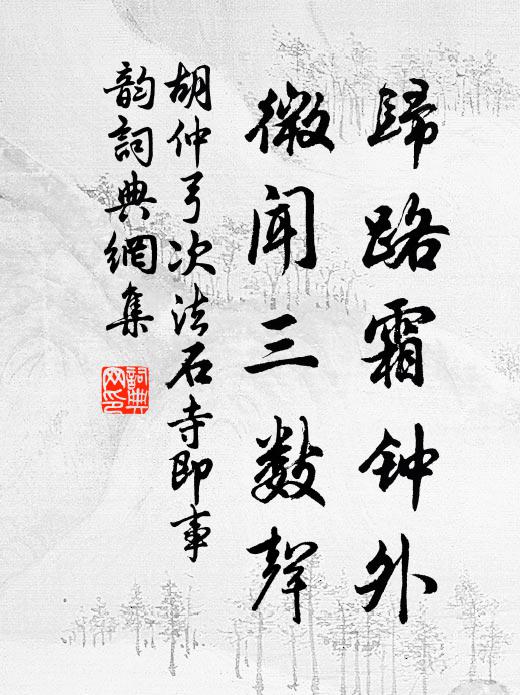 歸路霜钟外
微闻三数聲
胡仲弓次法石寺即事
韵詞典網集
詞典網印